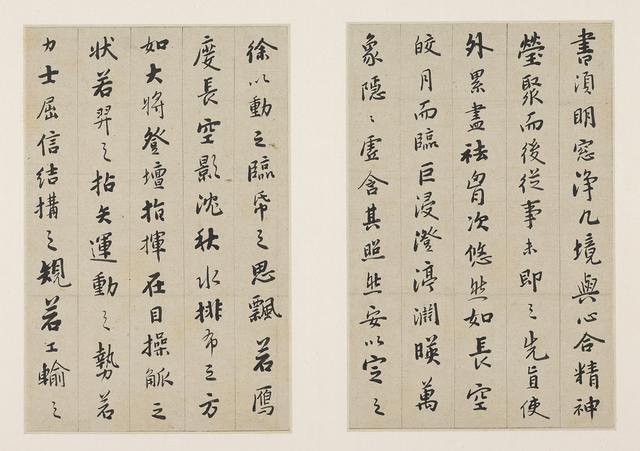 書須明窓浄几境與心合精神
瑩聚而後從事未即之先旨使
外累盡祛胷次悠然如長空
皎月而臨巨浸澄渟淵暎萬
象隱〻虛含其照然安以定之
徐以動之臨帋之思飄若鴈
度長空影沈秋水排布之方
如大將登壇指揮在目操觚之
状若羿之拈矢運動之勢若
力士屈信結搆之規若工輸之